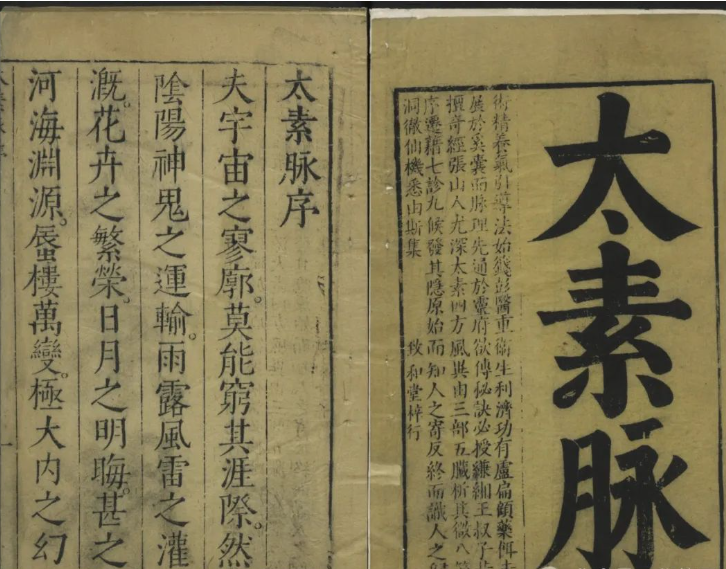 太素脉
術精養氣引導法始籛彭醫重衛生利濟功有盧扁顧藥餌
於奚囊而脉理先通於靈府欲傳秘訣必授縑緗王叔子
擅奇經張山人尤深太素四方風異由三部五臟析其微八
序遷藉七診九候發其隱原始而知人之寄反終而識人之
洞徹仙機悉由斯集 致和堂梓行
太素脉序
夫宇宙之寥廓。莫能窮其涯際。然
陰陽神鬼之運輸。雨露風雷之灌
溉。花卉之繁榮。日月之明晦。甚之
河海淵源。蜃樓萬變。極大内之幻